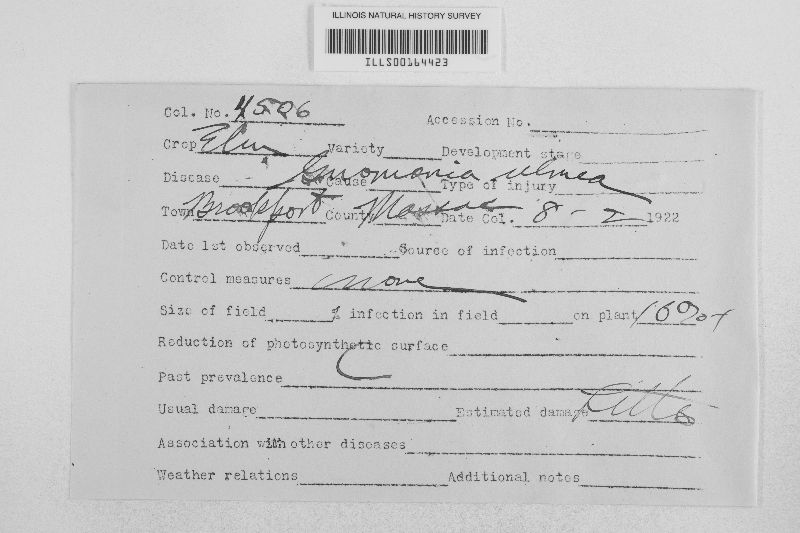 ILLINOIS NATURAL HISTORY SURVEY
ILLS00164423
Col. No. 4506 Accession No.
Crop Elm Variety Development stage
Disease Gnomonia ulmea Cause Type of injury
Town Brookport County Massac Date Col. 8-2 1922
Date 1st observed Source of infection
Control measures none
Size of field % infection in field on plant
Reduction of photosynthetic surface
Past prevalence
Usual damage Estimated damage Little
Association with other diseases
Weather relations Additional notes